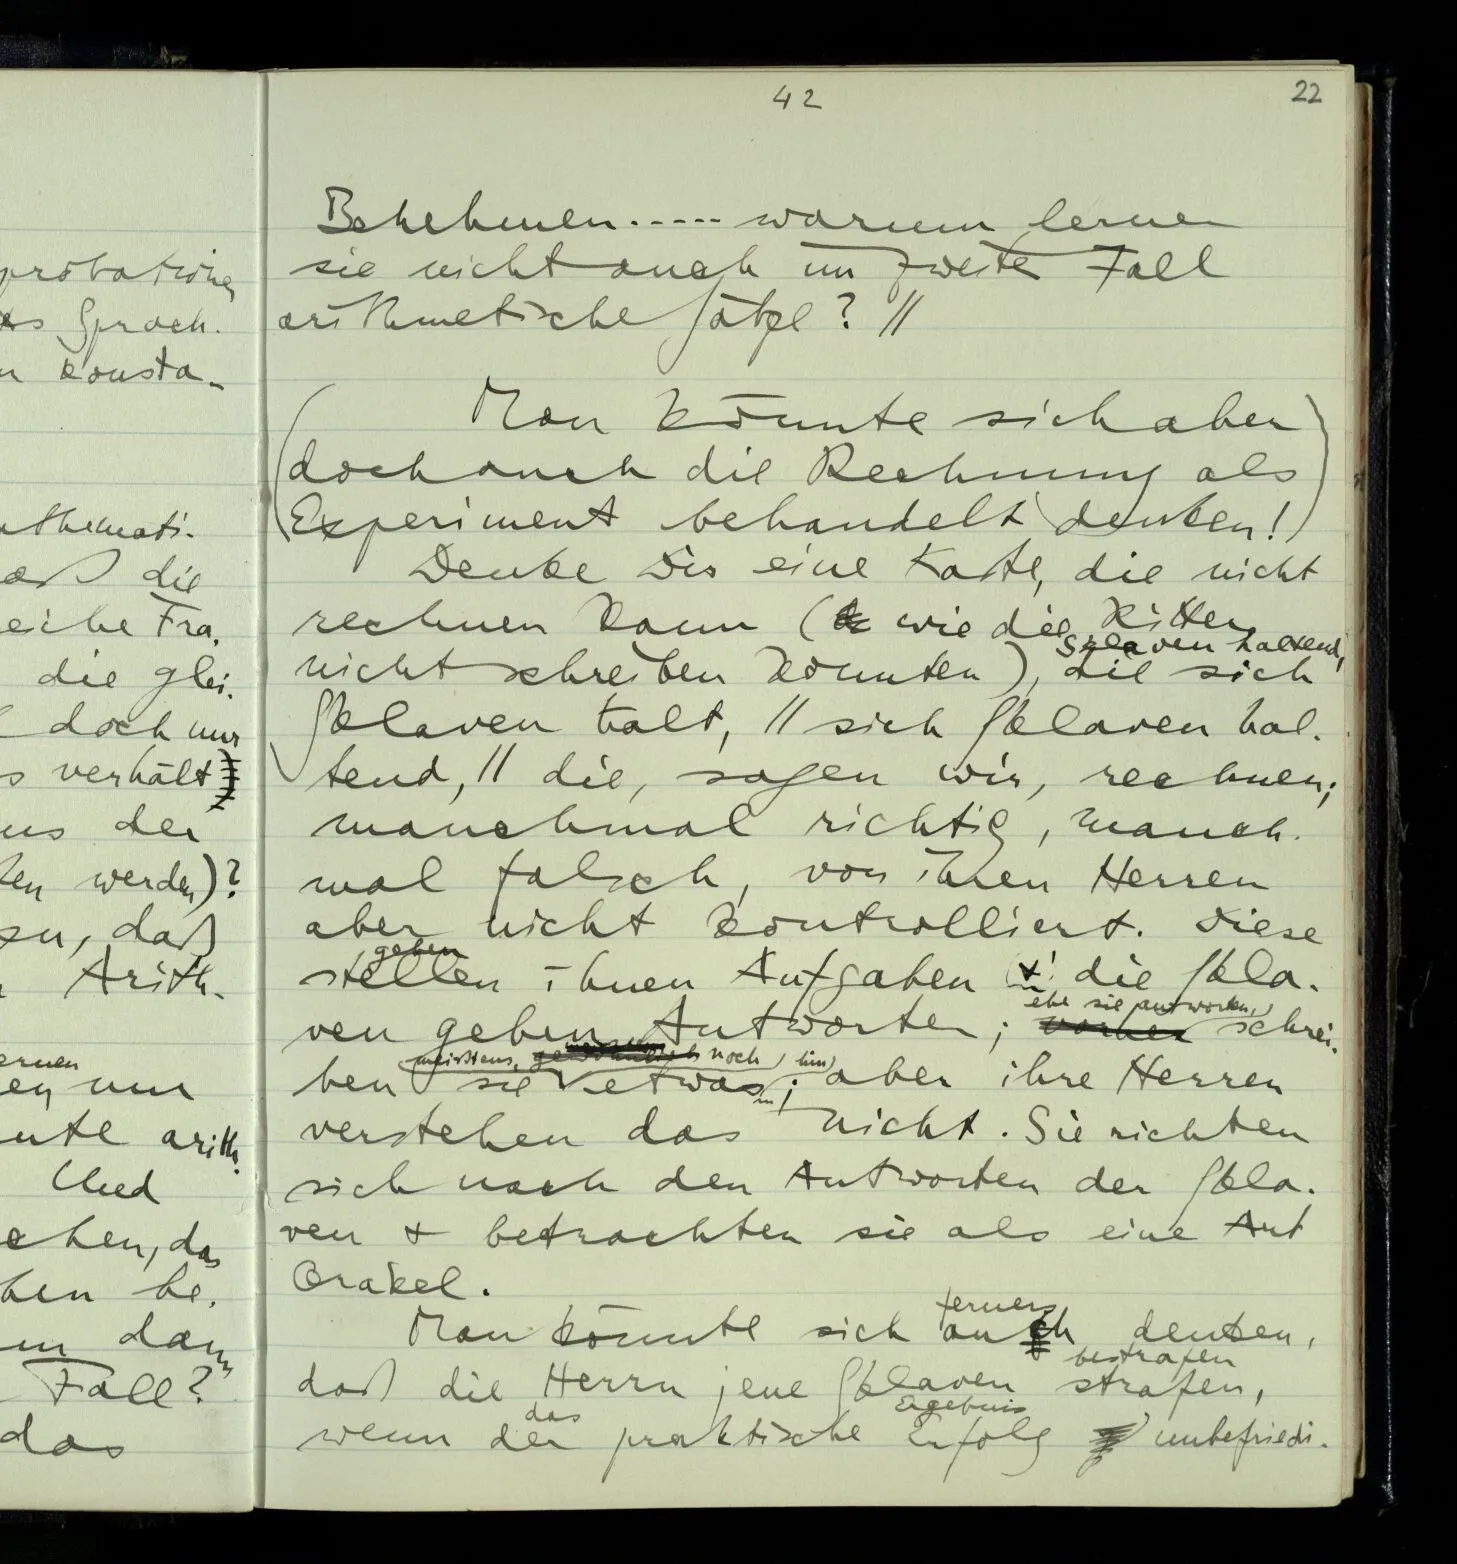 probationen
es Sprach-
n konsta-
athemati-
aß die
eiche Fra-
die glei-
doch nur
s verhält
us der
ten werden)?
zu, daß
Arith-
ernen
en nur
nte arith-
Und
chen, das
hen be-
m dann
Fall?
das
42
22
Benehmen..... warum lernen
sie nicht auch im zweiten Fall
arithmetische Sätze? //
Man könnte sich aber
(doch auch die Rechnung als
Experiment behandelt denken!)
Denke Dir eine Kaste, die nicht
rechnen kann ( wie die Ritter
Sklaven haltend,
nicht schreiben konnten), die sich
Sklaven hält, // sich Sklaven hal-
tend, // die, sagen wir, rechnen;
manchmal richtig, manch-
mal falsch, von ihren Herren
aber nicht kontrolliert. Diese
geben
stellen ihnen Aufgaben & die Skla-
ehe sie antworten,
ven geben Antworten; vorher schrei-
meistens, gewöhnlich noch, hin,
ben sie etwas; aber ihre Herren
verstehen das nicht. Sie richten
sich nach den Antworten der Skla-
ven & betrachten sie als eine Art
Orakel.
ferners
Man könnte sich auch denken,
bestrafen
daß die Herrn jene Sklaven strafen,
das Ergebnis
wenn der praktische Erfolg unbefriedi-